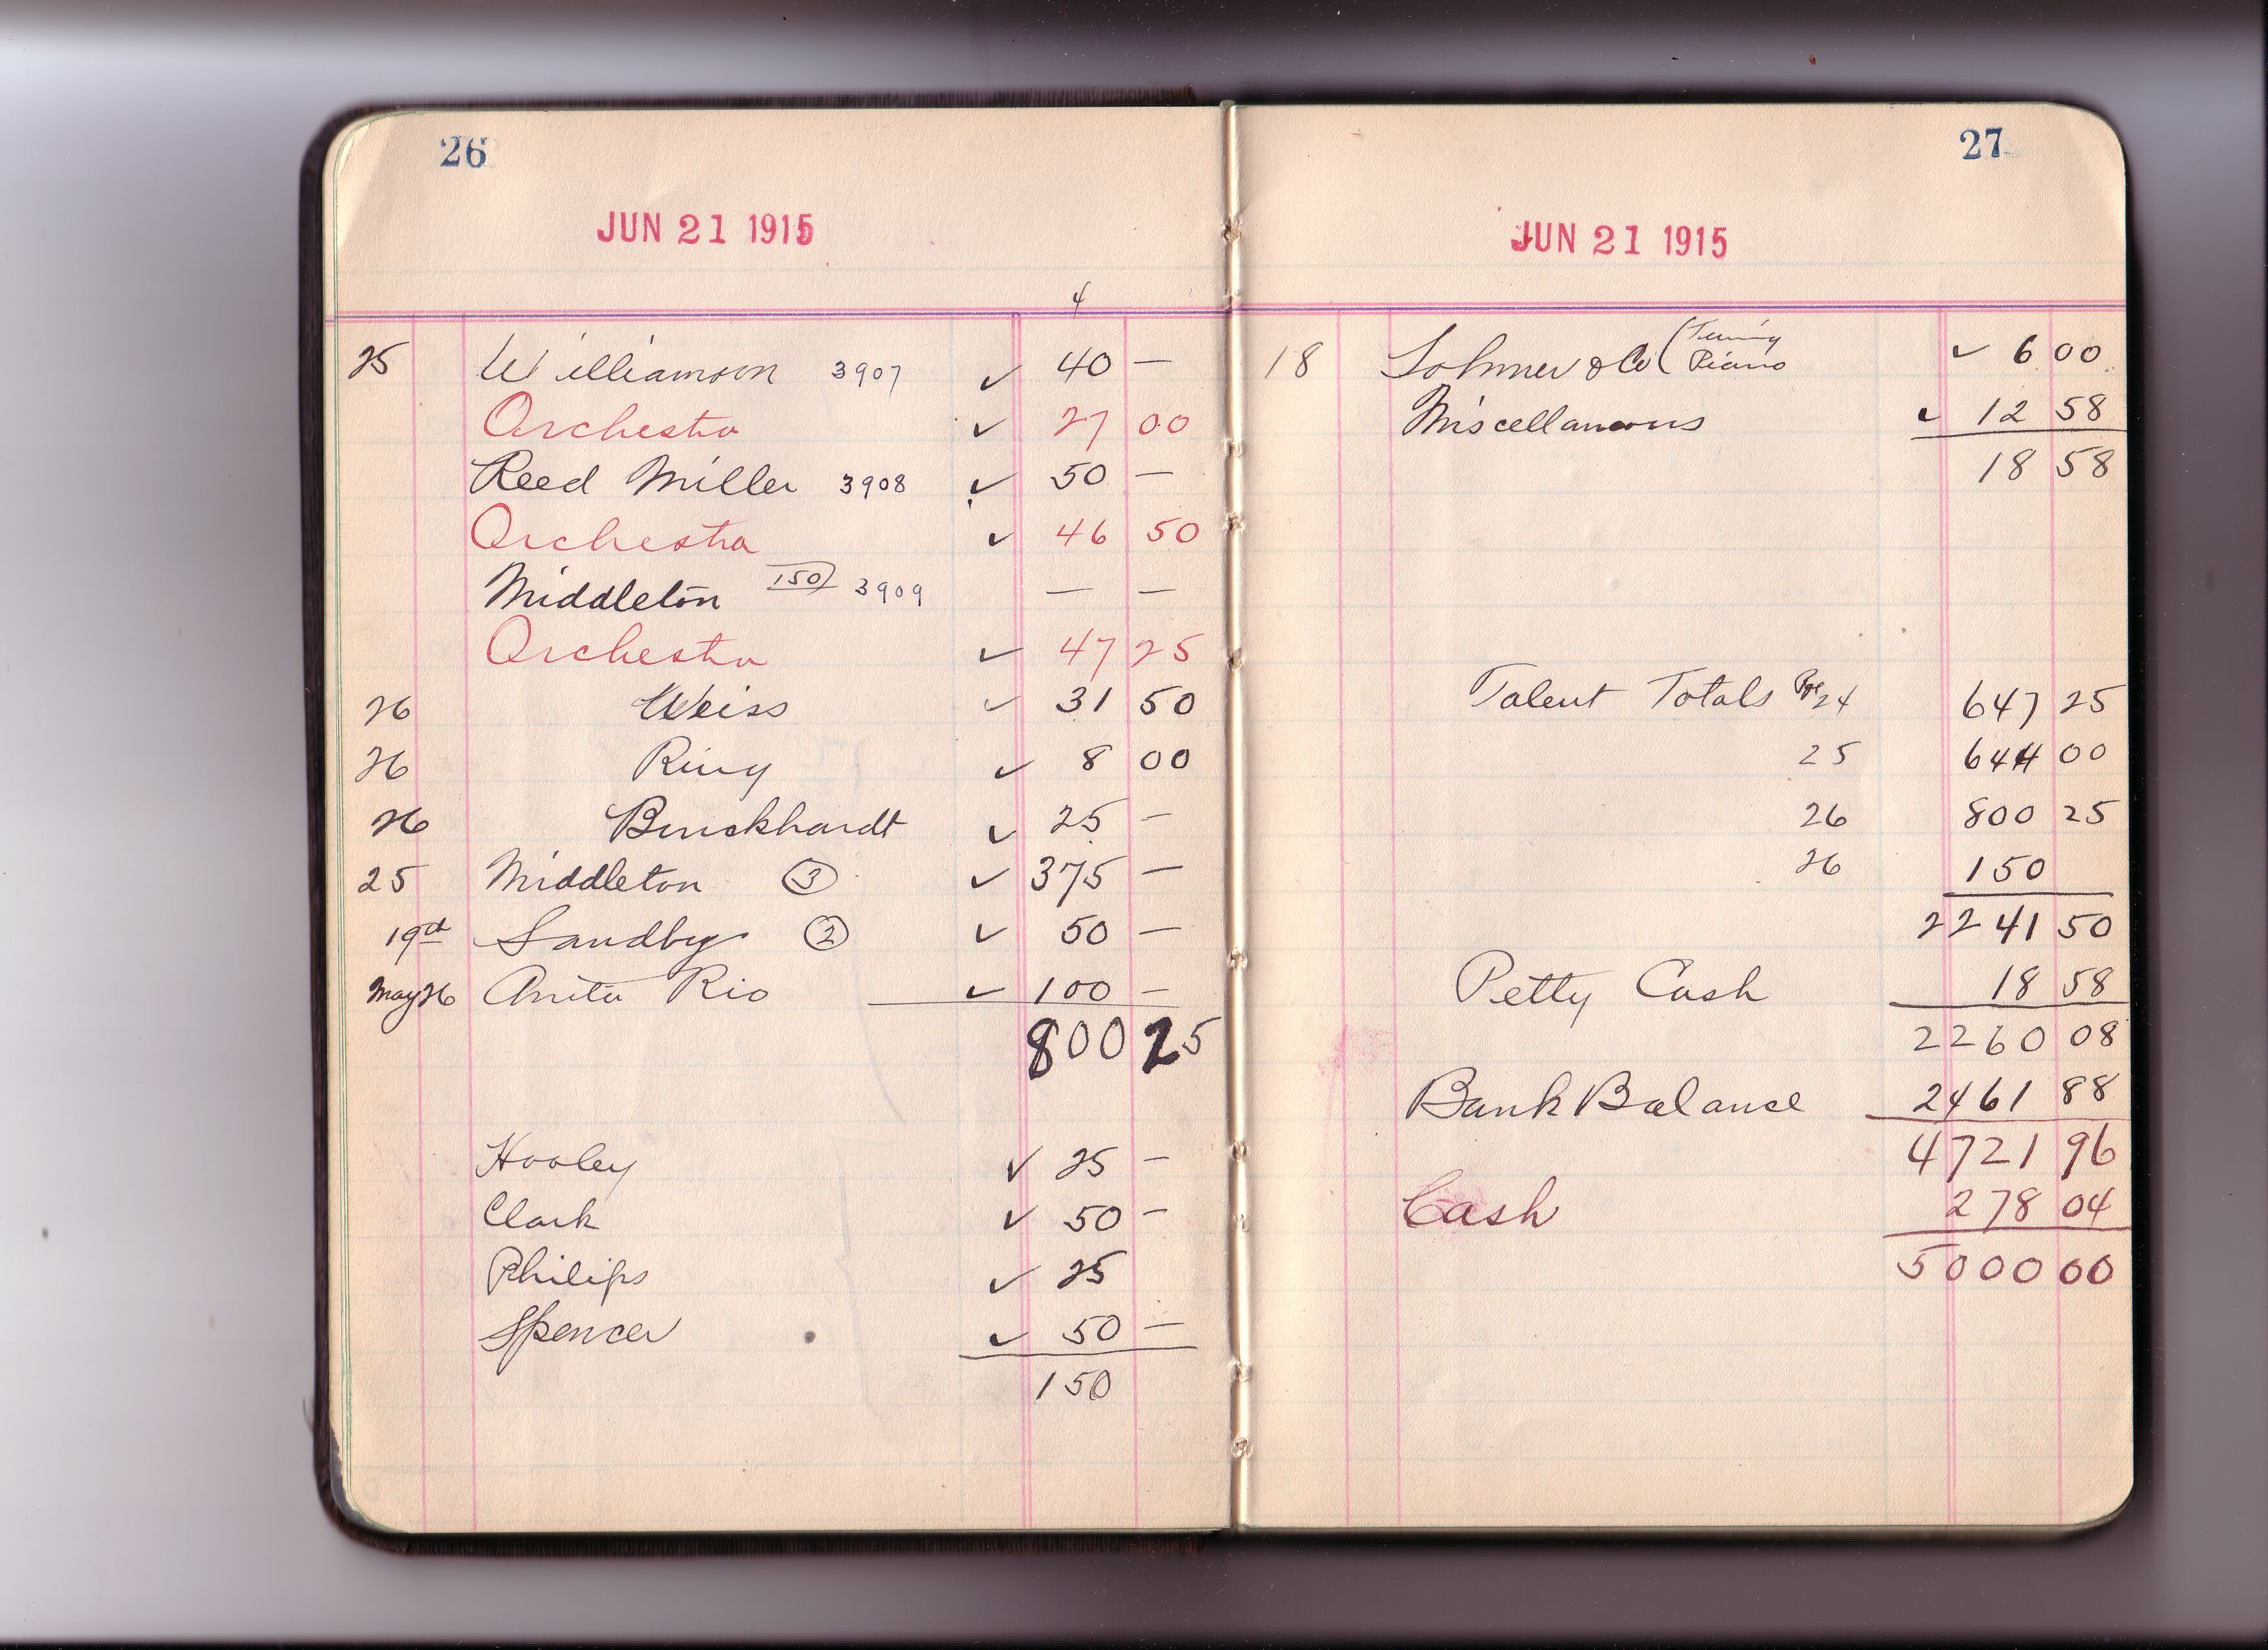 26
JUN 21 1915
4
25 Williamson 3907 ✓ 40 —
Orchestra ✓ 27 00
Reed Miller 3908 ✓ 50 —
Orchestra ✓ 46 50
Middleton 150 3909 — —
Orchestra ✓ 47 25
26 Weiss ✓ 31 50
26 Ring ✓ 8 00
26 Burckhardt ✓ 25 —
25 Middleton ③ ✓ 375 —
19th Sandby ② ✓ 50 —
May 26 Anita Rio ✓ 100 —
800 25
Hooley ✓ 25 —
Clark ✓ 50 —
Philips ✓ 25
Spencer ✓ 50 —
150
27
JUN 21 1915
18 Sohmer & Co (Tuning Piano ✓ 6 00
Miscellaneous ✓ 12 58
18 58
Talent Totals Pge 24 647 25
25 644 00
26 800 25
26 150
2241 50
Petty Cash 18 58
2260 08
Bank Balance 2461 88
4721 96
Cash 278 04
5000 00